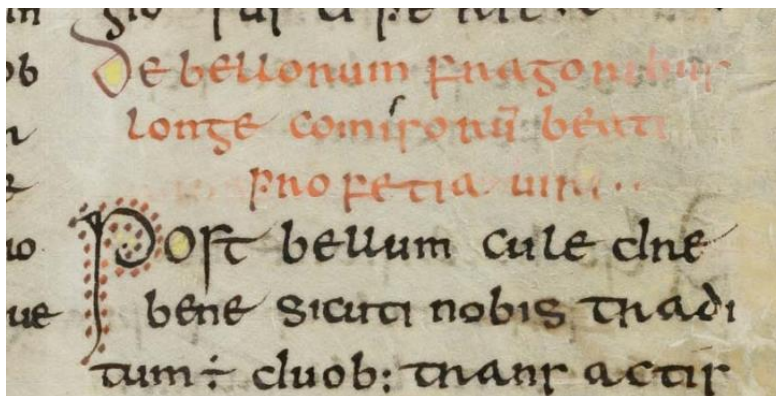 De bellorum fragoribus
longe comisorū beati
profetia uiri..
Post bellum cule dre
bene sicuti nobis tradi
tum ÷ duob: transactis